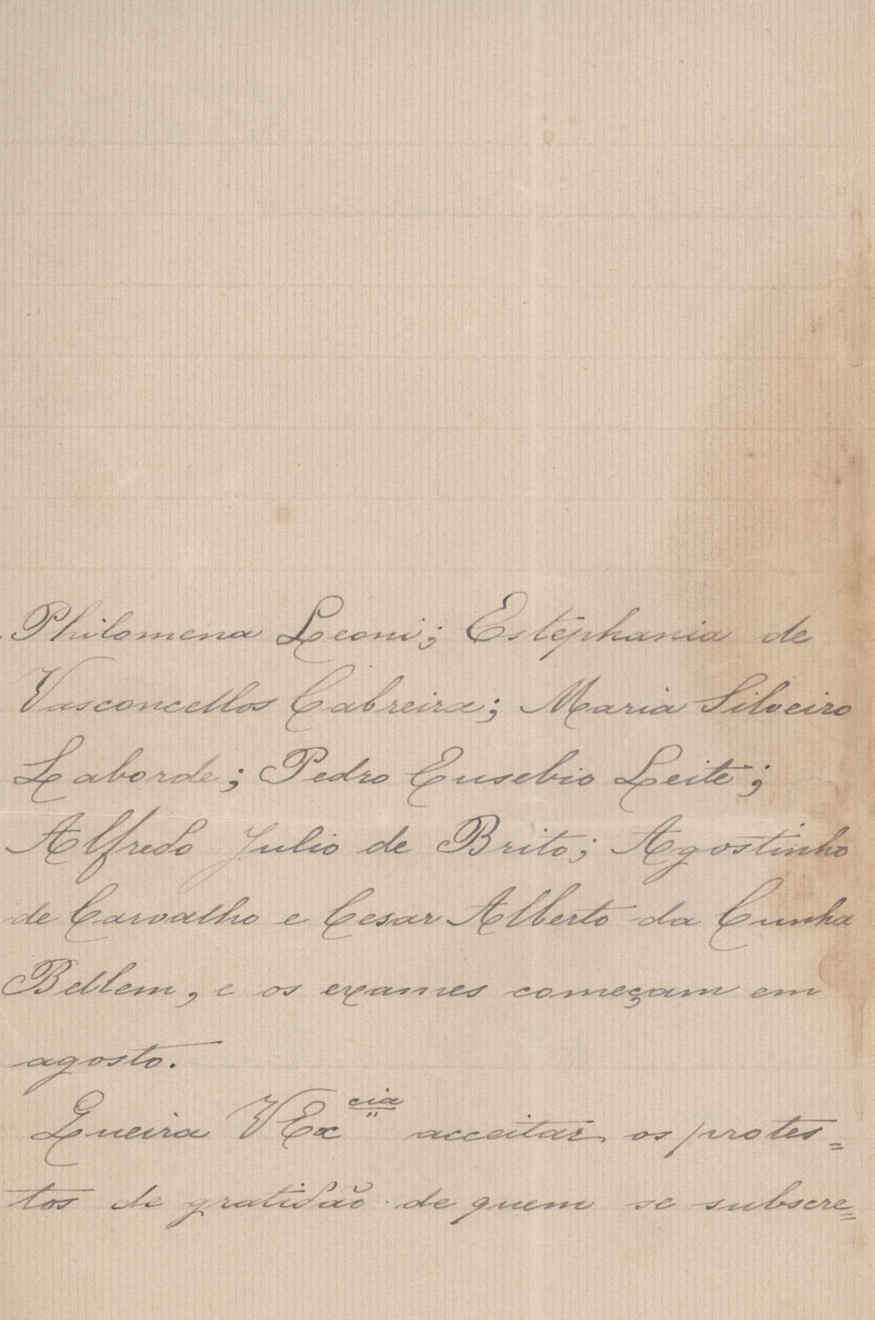 Philomena Leoni; Estéphania de
Vasconcellos Cabreira; Maria Silveiro
Laborde; Pedro Eusebio Leite;
Alfredo Julio de Brito; Agostinho
de Carvalho e Cesar Alberto da Cunha
Bellem, e os exames começam em
agosto.
Queira VEx^cia acceitar os protes=
tos de gratidão de quem se subscre=